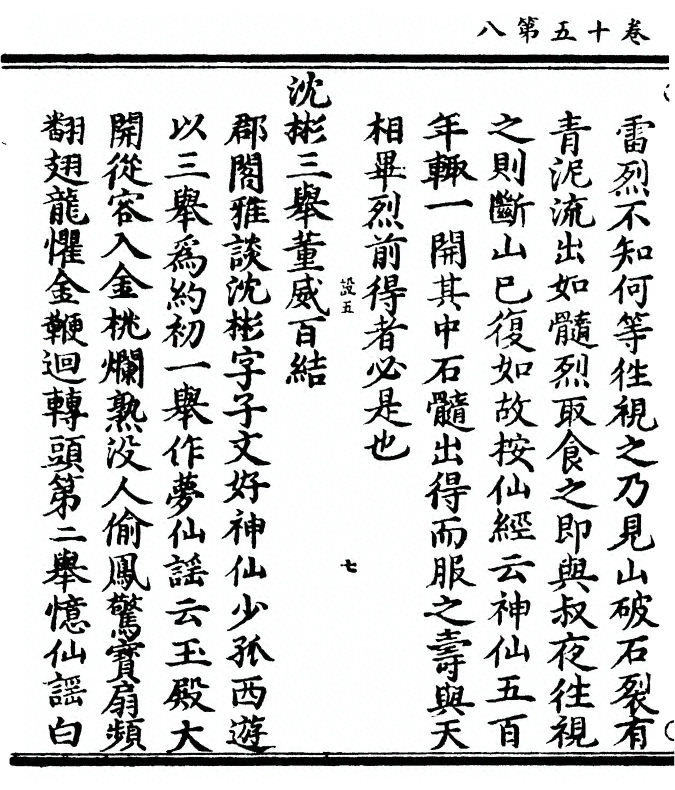 卷十五第八
雷烈不知何等往視之乃見山破石裂有
青泥流出如髓烈取食之即與叔夜往視
之則斷山已復如故按仙經云神仙五百
年輙一開其中石髓出得而服之壽與天
相畢烈前得者必是也
設五
七
沈彬三舉董威百結
郡閣雅談沈彬字子文好神仙少孤西遊
以三舉爲約初一舉作夢仙謡云玉殿大
開從容入金桃爛熟没人偷鳳驚寶扇頻
翻翅龍懼金鞭迴轉頭第二舉憶仙謡白